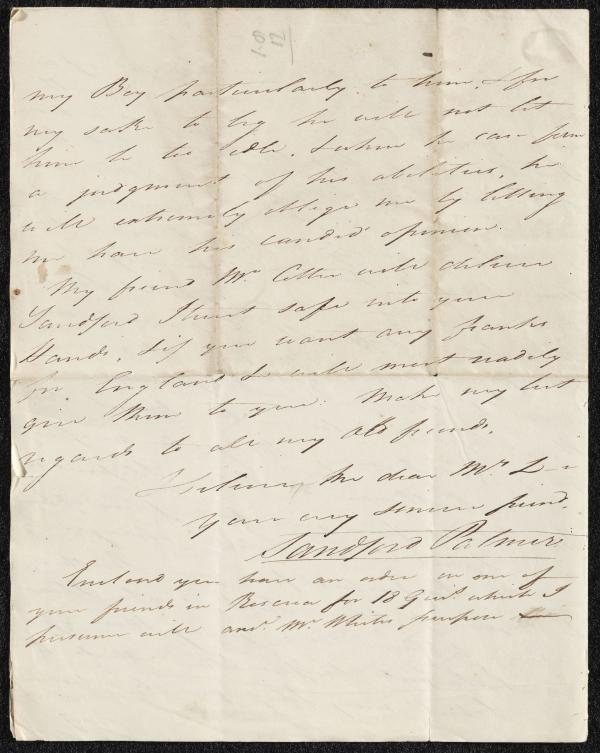 1-8
12
my Boy particularly to him, & for
my sake to beg he will not let
him be too idle, & when he can form
a judgment of his abilities, he
will extremely oblige me by letting
me have his candid opinion.
My friend Mr. will deliver
Sandford I trust safe into your
Hands, & if you want any franks
for England he will most readily
give them to you. Make my best
regards to all my old friends.
I the dear Mr. L
your very sincere friend.
Sandford Palmer.
Enclosed you have an order on one of
your friends in for 18 which I
presume will Mr. purpose